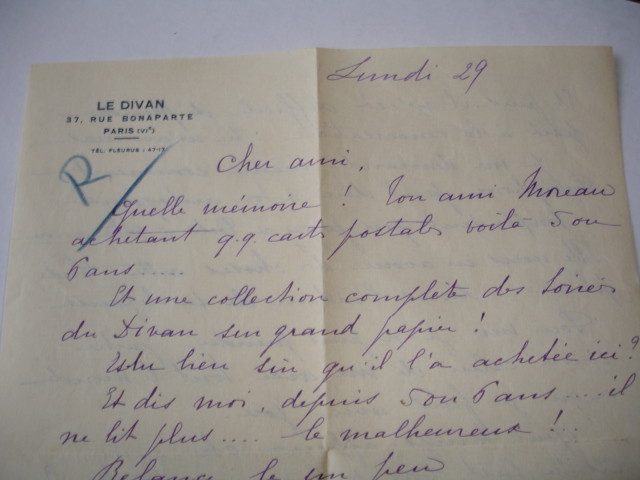 Lundi 29
LE DIVAN
37, RUE BONAPARTE
PARIS (VIᵉ)
TÉL. FLEURUS : 47-17
R
Cher ami,
Quelle mémoire ! Ton ami Moreau
achetant q.q. cartes postales voilà 5 ou
6 ans ....
Et une collection complète des Soirées
du Divan sur grand papier !
Es tu bien sûr qu'il l'a achetée ici ?
Et dis moi, depuis 5 ou 6 ans .... il
ne lit plus .... le malheureux !..
Relance le un peu